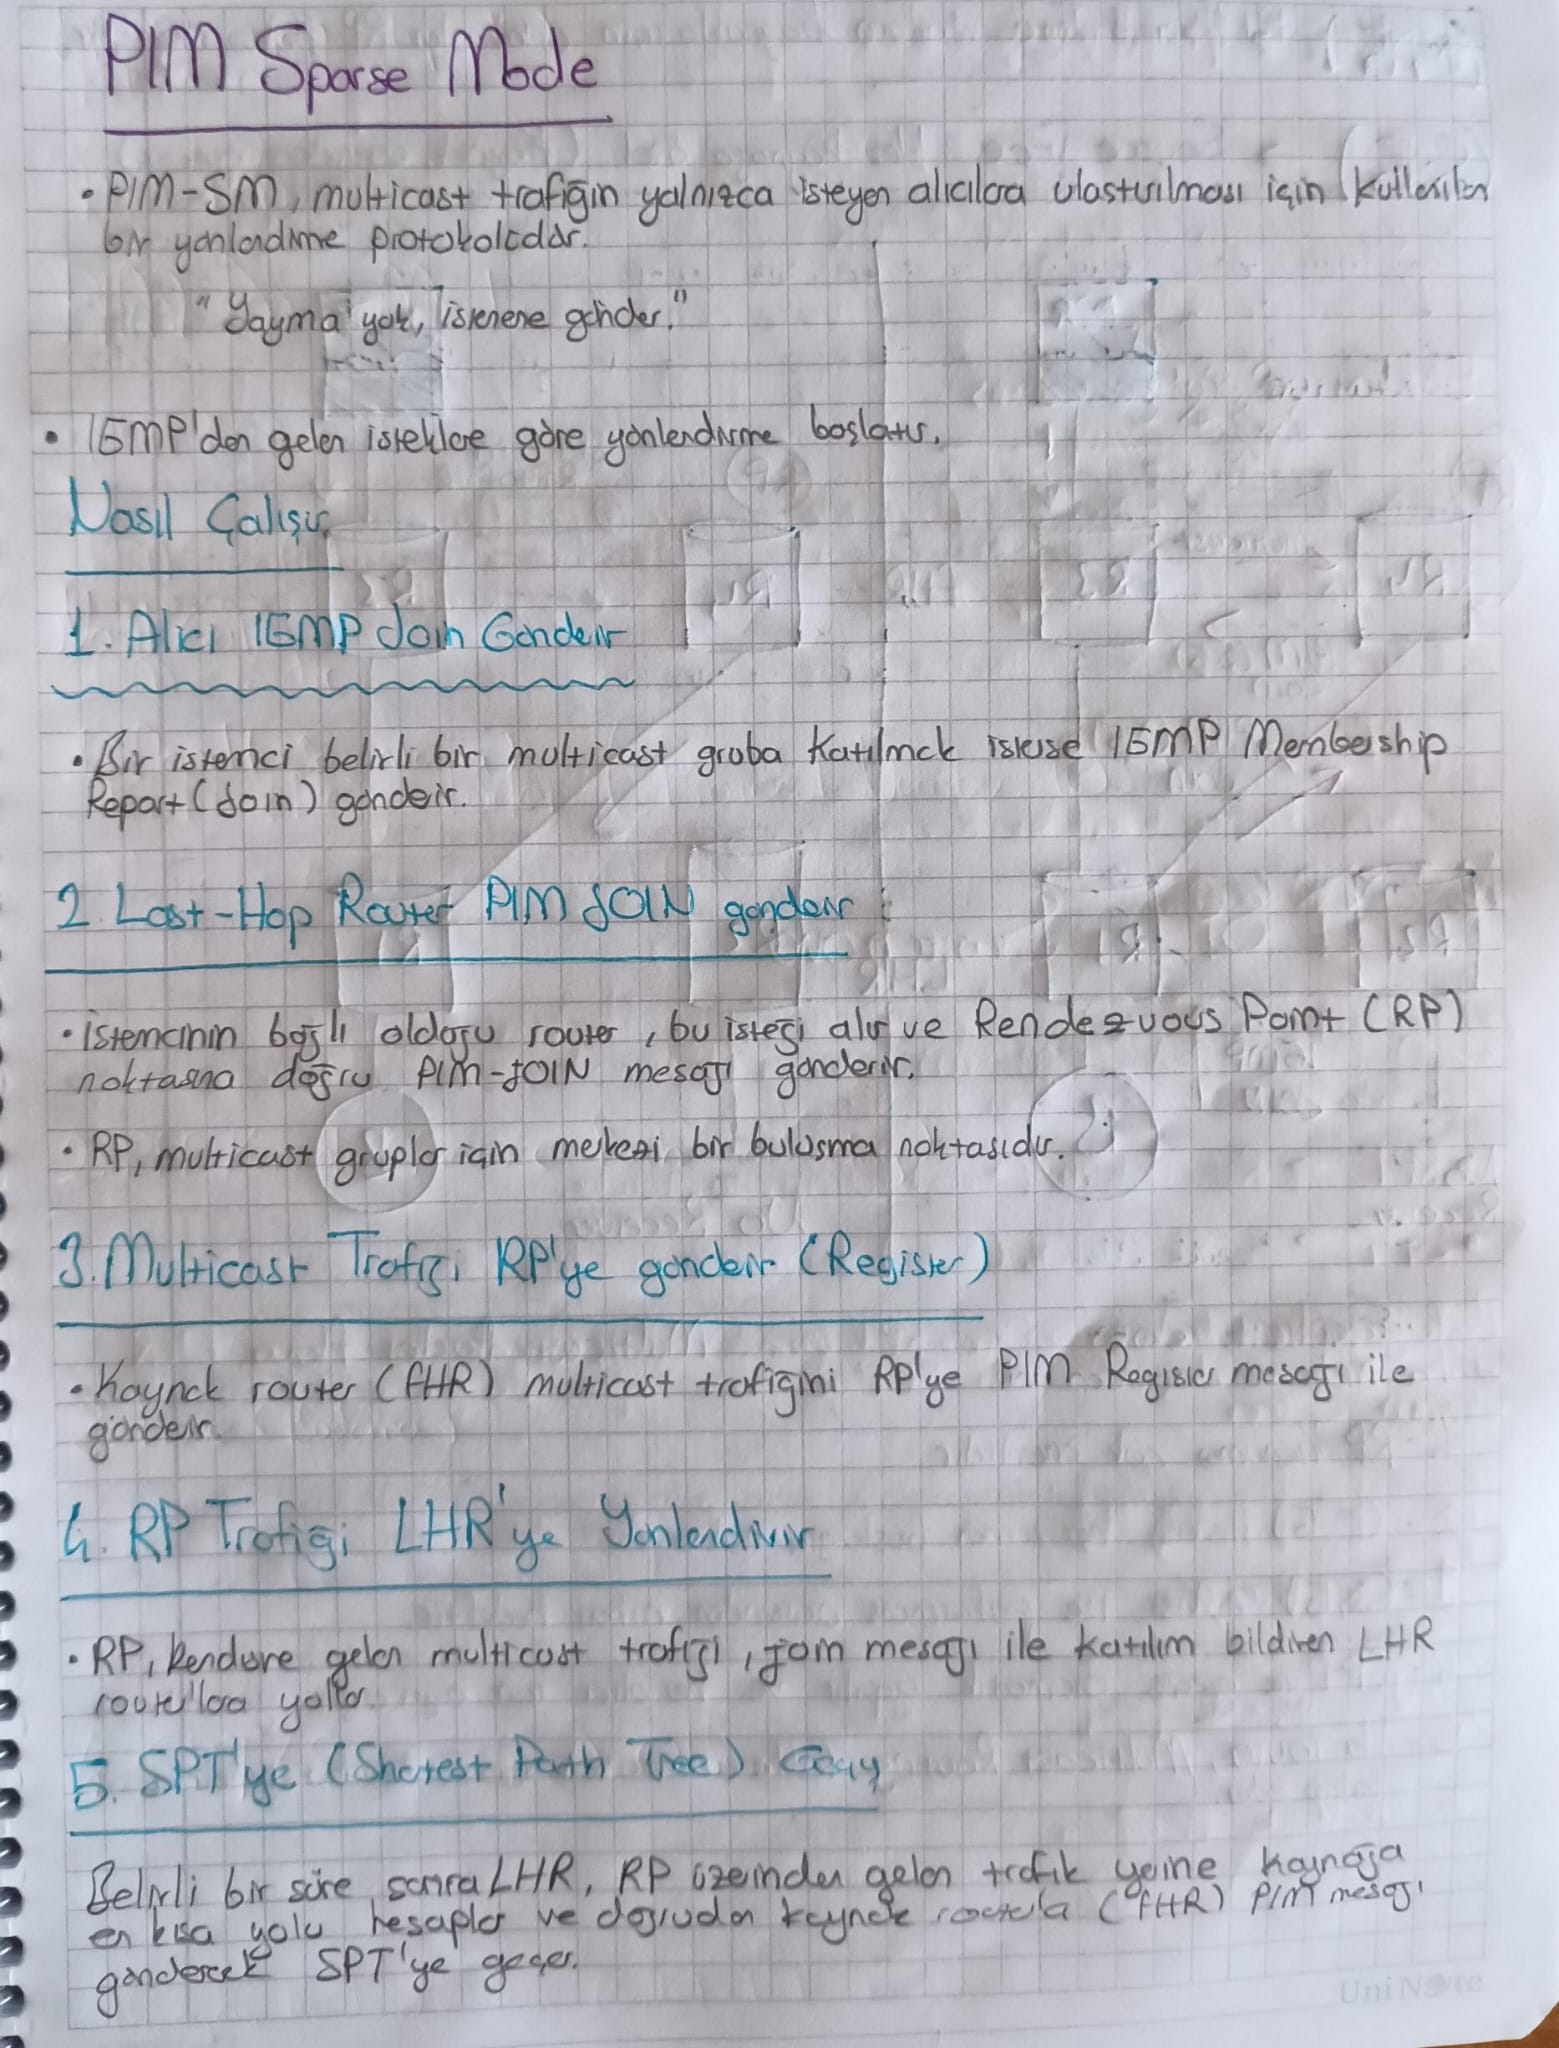 PIM Sparse Mode
• PIM-SM, multicast trafiğin yalnızca isteyen alıcılara ulaştırılması için kullanılan
bir yönlendirme protokolüdür.
"Yayma yok, istenene gönder."
• IGMP'den gelen isteklere göre yönlendirme başlatır.
Nasıl Çalışır
1. Alıcı IGMP Join Gönderir
• Bir istemci belirli bir multicast gruba katılmak isterse IGMP Membership
Report (Join) gönderir.
2. Last-Hop Router PIM JOIN gönderir
• istemcinin bağlı olduğu router, bu isteği alır ve Rendezvous Point (RP)
noktasına doğru PIM-JOIN mesajı gönderir.
• RP, multicast gruplar için merkezi bir buluşma noktasıdır.
3. Multicast Trafiği RP'ye gönderir (Register)
• Kaynak router (FHR) multicast trafiğini RP'ye PIM Register mesajı ile
gönderir.
4. RP Trafiği LHR'ye Yönlendirir
• RP, kendisine gelen multicast trafiği, join mesajı ile katılım bildiren LHR
router'lara yollar.
5. SPT'ye (Shortest Path Tree) Geçiş
Belirli bir süre sonra LHR, RP üzerinden gelen trafik yerine kaynağa
en kısa yolu hesaplar ve doğrudan kaynak routerla (FHR) PIM mesajı
göndererek SPT'ye geçer.
UniNote